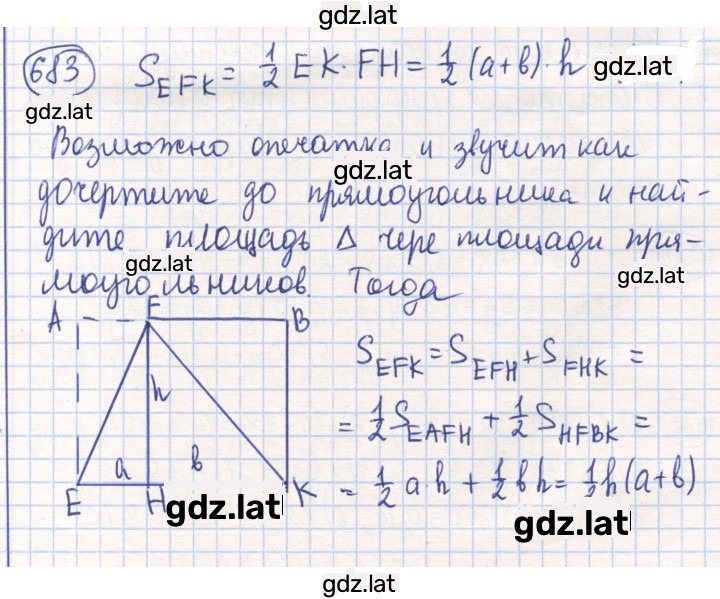 gdz.lat
683 S_EFK = 1/2 EK · FH = 1/2 (a+b) · h gdz.lat
gdz.lat
Возможно опечатка и звучит как
gdz.lat
дочертите до прямоугольника и най-
дите площадь Δ чере площади пря-
gdz.lat
моугольников. Тогда gdz.lat
A F B
S_EFK = S_EFH + S_FHK =
h
= 1/2 S_EAFH + 1/2 S_HFBK =
a b
E H K
= 1/2 a·h + 1/2 bh = 1/2 h(a+b)
gdz.lat
gdz.lat
gdz.lat